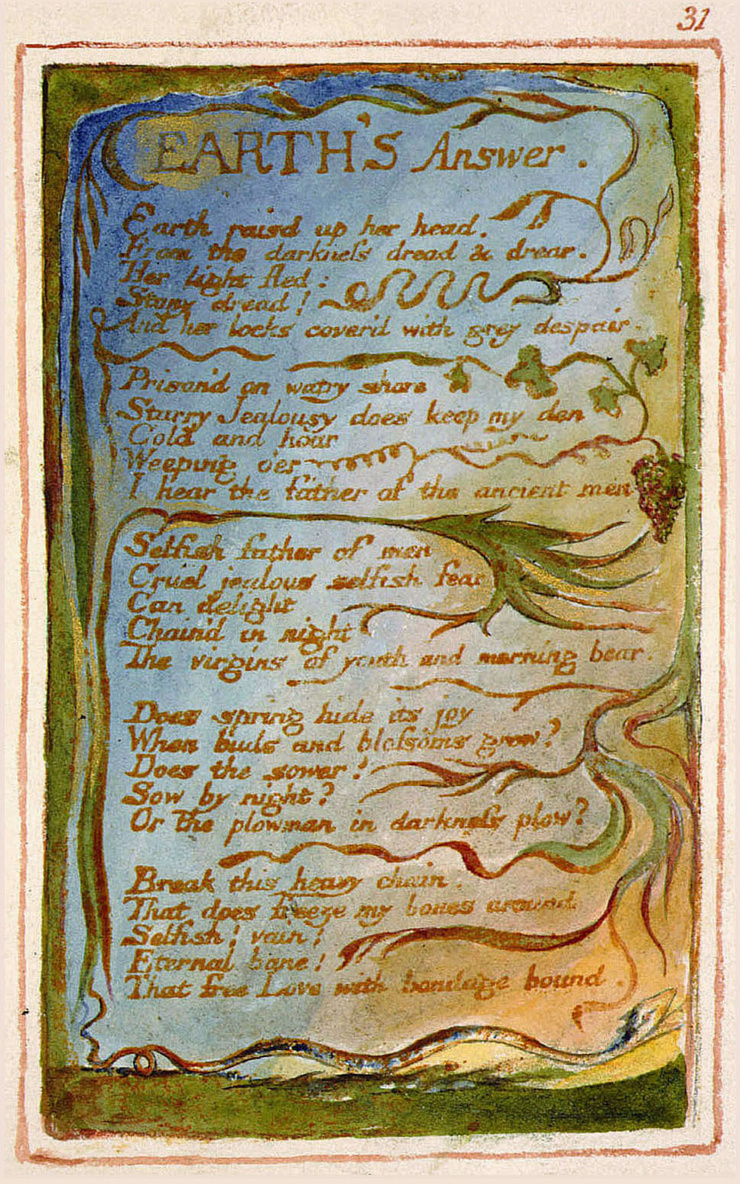 31
EARTH'S Answer.
Earth rais'd up her head,
From the darkneſs dread & drear.
Her light fled:
Stony dread!
And her locks cover'd with grey despair.
Prison'd on watry shore
Starry Jealousy does keep my den
Cold and hoar
Weeping o'er
I hear the father of the ancient men
Selfish father of men
Cruel jealous selfish fear
Can delight
Chain'd in night
The virgins of youth and morning bear.
Does spring hide its joy
When buds and bloſsoms grow?
Does the sower!
Sow by night?
Or the plowman in darkneſs plow?
Break this heavy chain.
That does freeze my bones around
Selfish! vain!
Eternal bane!
That free Love with bondage bound.